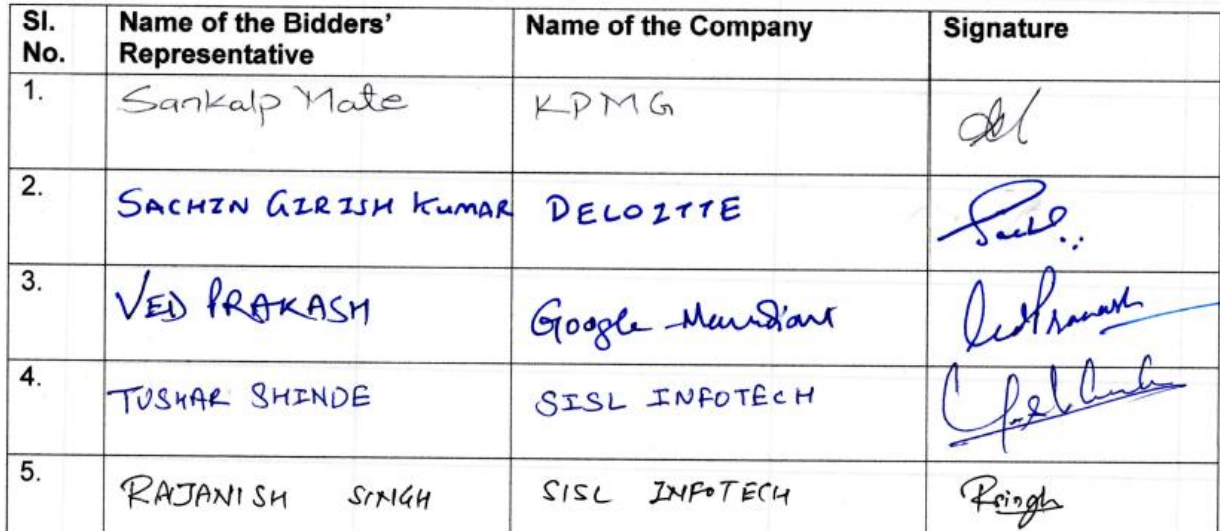 Sl. No. Name of the Bidders' Representative Name of the Company Signature
1. Sankalp Mate KPMG
2. SACHIN GIRISH KUMAR DELOITTE
3. VED PRAKASH Google Mandiant Ved Prakash
4. TUSHAR SHINDE SISL INFOTECH
5. RAJANISH SINGH SISL INFOTECH RSingh